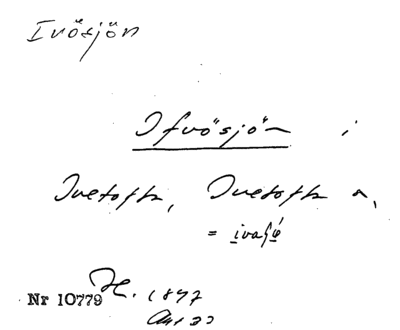 Ivösjön
Ifvösjön i
Ivetofta, Ivetofta s,
= ivaʃö
Nr 10779 H. 1847